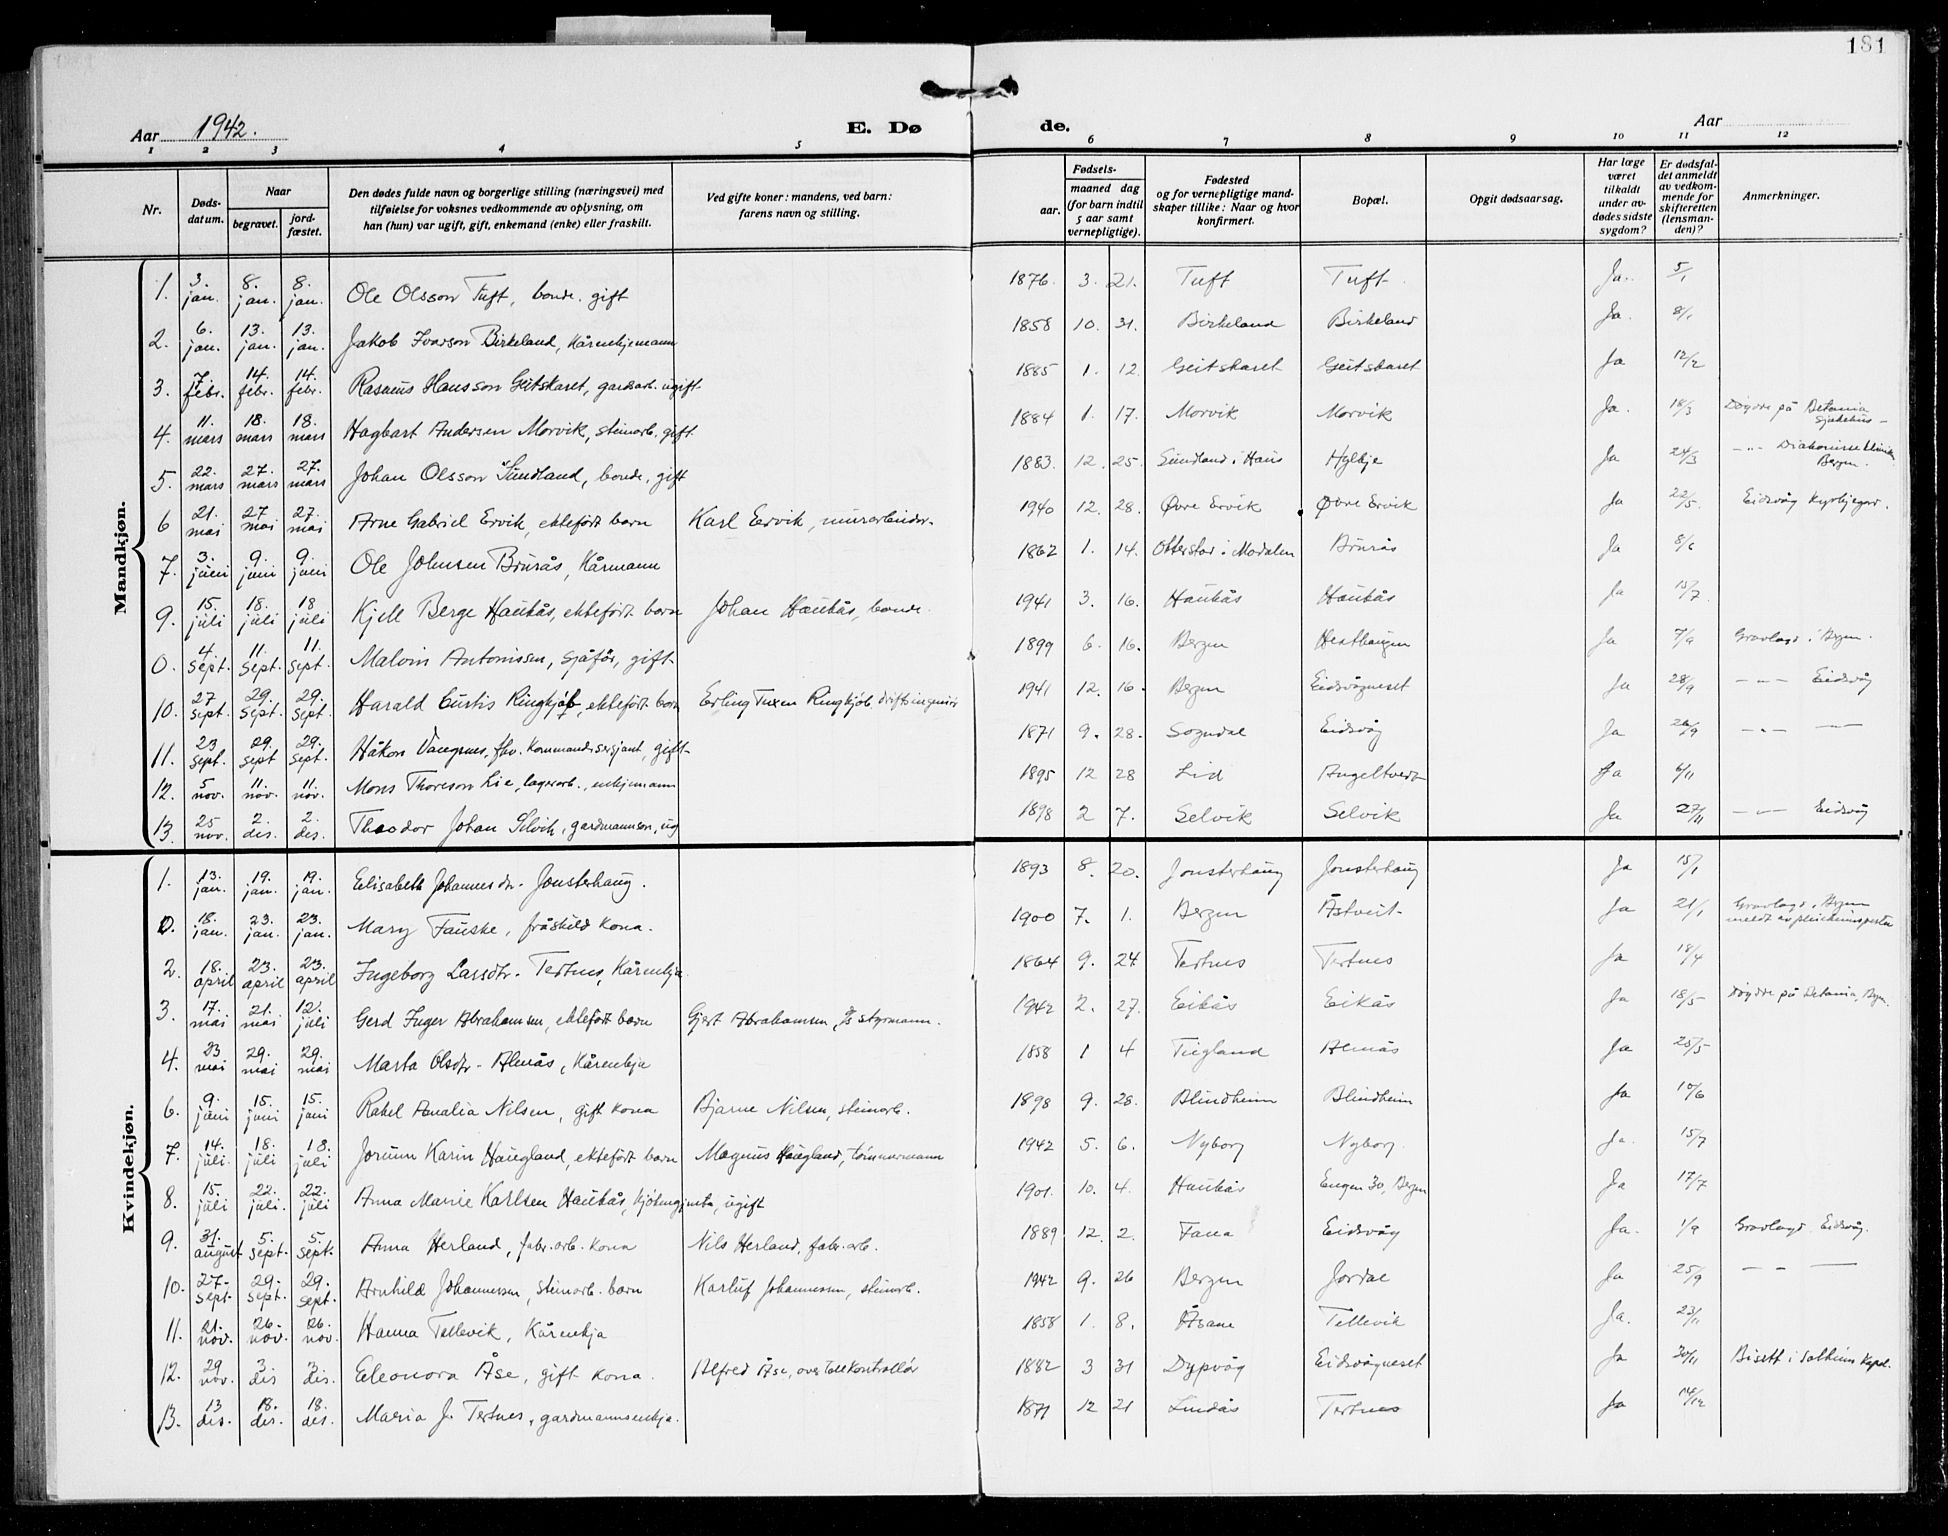 181
Aar 1942. E. Døde. Aar
1 2 3 4 5 6 7 8 9 10 11 12
Nr. Dødsdatum. Naar begravet. jordfæstet. Den dødes fulde navn og borgerlige stilling (næringsvei) med tilføielse for voksnes vedkommende av oplysning, om han (hun) var ugift, gift, enkemand (enke) eller fraskilt. Ved gifte koner: mandens, ved barn: farens navn og stilling. Fødsels- aar. maaned dag (for barn indtil 5 aar samt vernepligtige). Fødested og for vernepligtige mandskaper tillike: Naar og hvor konfirmert. Bopæl. Opgit dødsaarsag. Har læge været tilkaldt under avdødes sidste sygdom? Er dødsfaldet anmeldt av vedkommende for skifteretten (lensmanden)? Anmerkninger.
Mandkjøn.
1. 3. jan. 8. jan. 8. jan. Ole Olsson Tuft, bonde. gift 1876. 3. 21. Tuft Tuft. Ja. 5/1
2. 6. jan. 13. jan. 13. jan. Jakob Ivarson Birkeland, kårenkjemann 1858 10. 31. Birkeland Birkeland Ja. 8/1
3. 7. febr. 14. febr. 14. febr. Rasmus Hansson Geitskaret, gardsarb. ugift. 1885 1. 12. Geitskaret Geitskaret Ja 12/2
4. 11. mars 18. mars 18. mars Hagbart Andersen Morvik, steinarb. gift. 1884 1. 17. Morvik Morvik Ja. 18/3 Døydde på Betania Sjukehus
5. 22. mars 27. mars 27. mars Johan Olsson Sundland, bonde, gift 1883. 12. 25. Sundland i Haus Hylkje Ja 24/3 - " - Diakonisseklinikk Bergen.
6 21. mai 27. mai 27. mai Arne Gabriel Ervik, ektefødt barn Karl Ervik, murarbeider. 1940 12. 28. Øvre Ervik Øvre Ervik Ja 22/5. Eidsvåg Kyrkjegar.
7. 3. juni 9. juni 9. juni Ole Johnsen Brurås, Kårmann 1862 1. 14. Otterstad i Modalen Brurås Ja 8/6
9. 15. juli 18. juli 18 juli Kjell Berge Haukås, ektefødt barn Johan Haukås, bonde. 1941 3. 16. Haukås Haukås Ja 15/7.
0. 4. sept. 11. sept. 11. sept. Malvin Antonissen, sjåfør, gift 1899 6. 16. Bergen Hesthaugen Ja 7/9 Gravlagd i Bergen.
10. 27 sept. 29. sept. 29. sept. Harald Curtis Ringkjøb, ektefødt barn Erling Tuxen Ringkjøb. driftsingeniør 1941 12. 16. Bergen Eidsvågneset Ja 28/9 - " - Eidsvåg
11. 23 sept. 29. sept 29. sept. Håkon Vangsnes, fhv. kommandersersjant, gift 1871 9. 28. Sogndal Eidsvåg Ja 26/9 - " - —
12. 5 nov. 11. nov. 11. nov. Mons Thoreson Lie, lagerarb., enkjemann 1895 12 28 Lid Angeltveit Ja 6/11
13. 25 nov. 2. des. 2. des. Theodor Johan Selvik, gardmannson, ug 1898 2 7. Selvik Selvik Ja 27/11 - " - Eidsvåg
Kvindekjøn.
1. 13. jan. 19. jan. 19. jan. Elisabeth Johannesdr. Jonsterhaug. 1893 8. 20. Jonsterhaug Jonsterhaug Ja 15/1
0. 18. jan. 23. jan. 23. jan. Mary Fauske, fråskild kona. 1900 7. 1. Bergen Åstveit Ja 21/1 Gravlagd i Bergen meldt av
2. 18. april 23. april 23. april Ingeborg Larsdtr. Tertnes, Kårenkja 1864 9. 24. Tertnes Tertnes Ja 18/4
3. 17. mai 21. mai 12. juli Gerd Inger Abrahamsen, ektefødt barn Gjert Abrahamsen, styrmann. 1942 2. 27. Eikås Eikås Ja 18/5 Døydde på Betania, Bgn.
4. 23 mai 29. mai 29. mai Marta Olsdtr. Almås, Kårenkja 1858 1 4 Tugland Almås Ja 25/5
6. 9. juni 15. juni 15. juni Rakel Amalia Nilsen, gift kona Bjarne Nilsen, steinarb. 1898 9. 28. Blindheim Blindheim Ja 10/6
7. 14. juli. 18. juli 18. juli Jorunn Karin Haugland, ektefødt barn Magnus Haugland, tømmermann 1942 5. 6. Nyborg Nyborg. Ja. 15/7
8. 15. juli 22. juli. 22. juli Anna Marie Karlsen Haukås, kjøkengjenta, ugift 1901. 10. 4. Haukås Engen 30, Bergen Ja 17/7
9. 31. august 5. sept. 5. sept. Anna Herland, fabr. arb. kona Nils Herland, fabr. arb. 1889 12. 2. Fana Eidsvåg Ja. 1/9 Gravlagd Eidsvåg.
10. 27. sept. 29. sept. 29. sept. Arnhild Johannessen, steinarb. barn Karluf Johannessen, steinarb. 1942 9. 26 Bergen Jordal Ja 25/9 - - —
11. 21. nov. 26. nov. 26. nov. Hanna Tellevik, Kårenkja 1858 1. 8. Åsane Tellevik Ja. 23/11
12. 29 nov. 3. des 3. des. Eleonora Åse, gift kona. Alfred Åse, overtollkontrollør 1882 3 31 Dypvåg Eidsvågneset Ja 30/11 Bisett i Solheim Kapel.
13. 13 des. 18. des. 18. des. Maria J. Tertnes, gardmannsenkja. 1871 12 21 Lindås Tertnes Ja 14/12